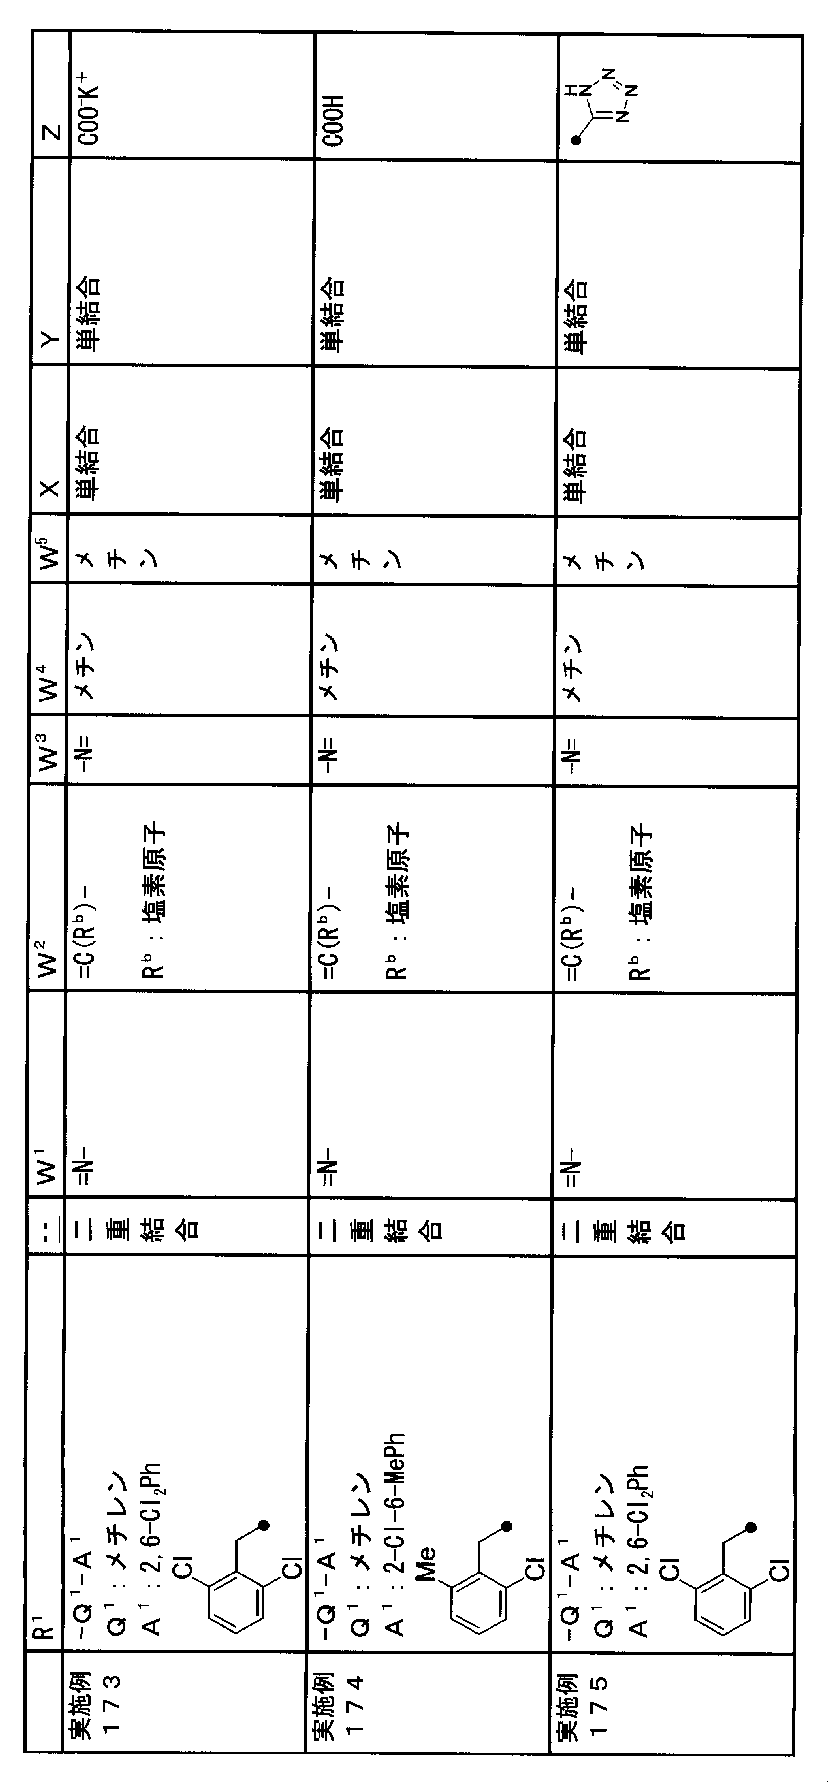 R¹
W¹
W²
W³
W⁴
W⁵
X
Y
Z
実施例
173
-Q¹-A¹
Q¹：メチレン
A¹：2,6-Cl₂Ph
Cl
Cl
二
重
結
合
=N-
=C(Rᵇ)-
Rᵇ：塩素原子
-N=
メチン
メ
チ
ン
単結合
単結合
COO⁻K⁺
実施例
174
-Q¹-A¹
Q¹：メチレン
A¹：2-Cl-6-MePh
Me
Cl
二
重
結
合
=N-
=C(Rᵇ)-
Rᵇ：塩素原子
-N=
メチン
メ
チ
ン
単結合
単結合
COOH
実施例
175
-Q¹-A¹
Q¹：メチレン
A¹：2,6-Cl₂Ph
Cl
Cl
二
重
結
合
=N-
=C(Rᵇ)-
Rᵇ：塩素原子
-N=
メチン
メ
チ
ン
単結合
単結合
H
N
N
N
N